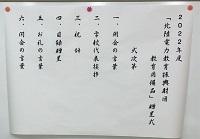 ２０２２年度
「北陸電力教育振興財団
教育用備品」贈呈式
式次第
一．開会の言葉
二．学校代表挨拶
三．祝辞
四．目録贈呈
五．お礼の言葉
六．閉会の言葉